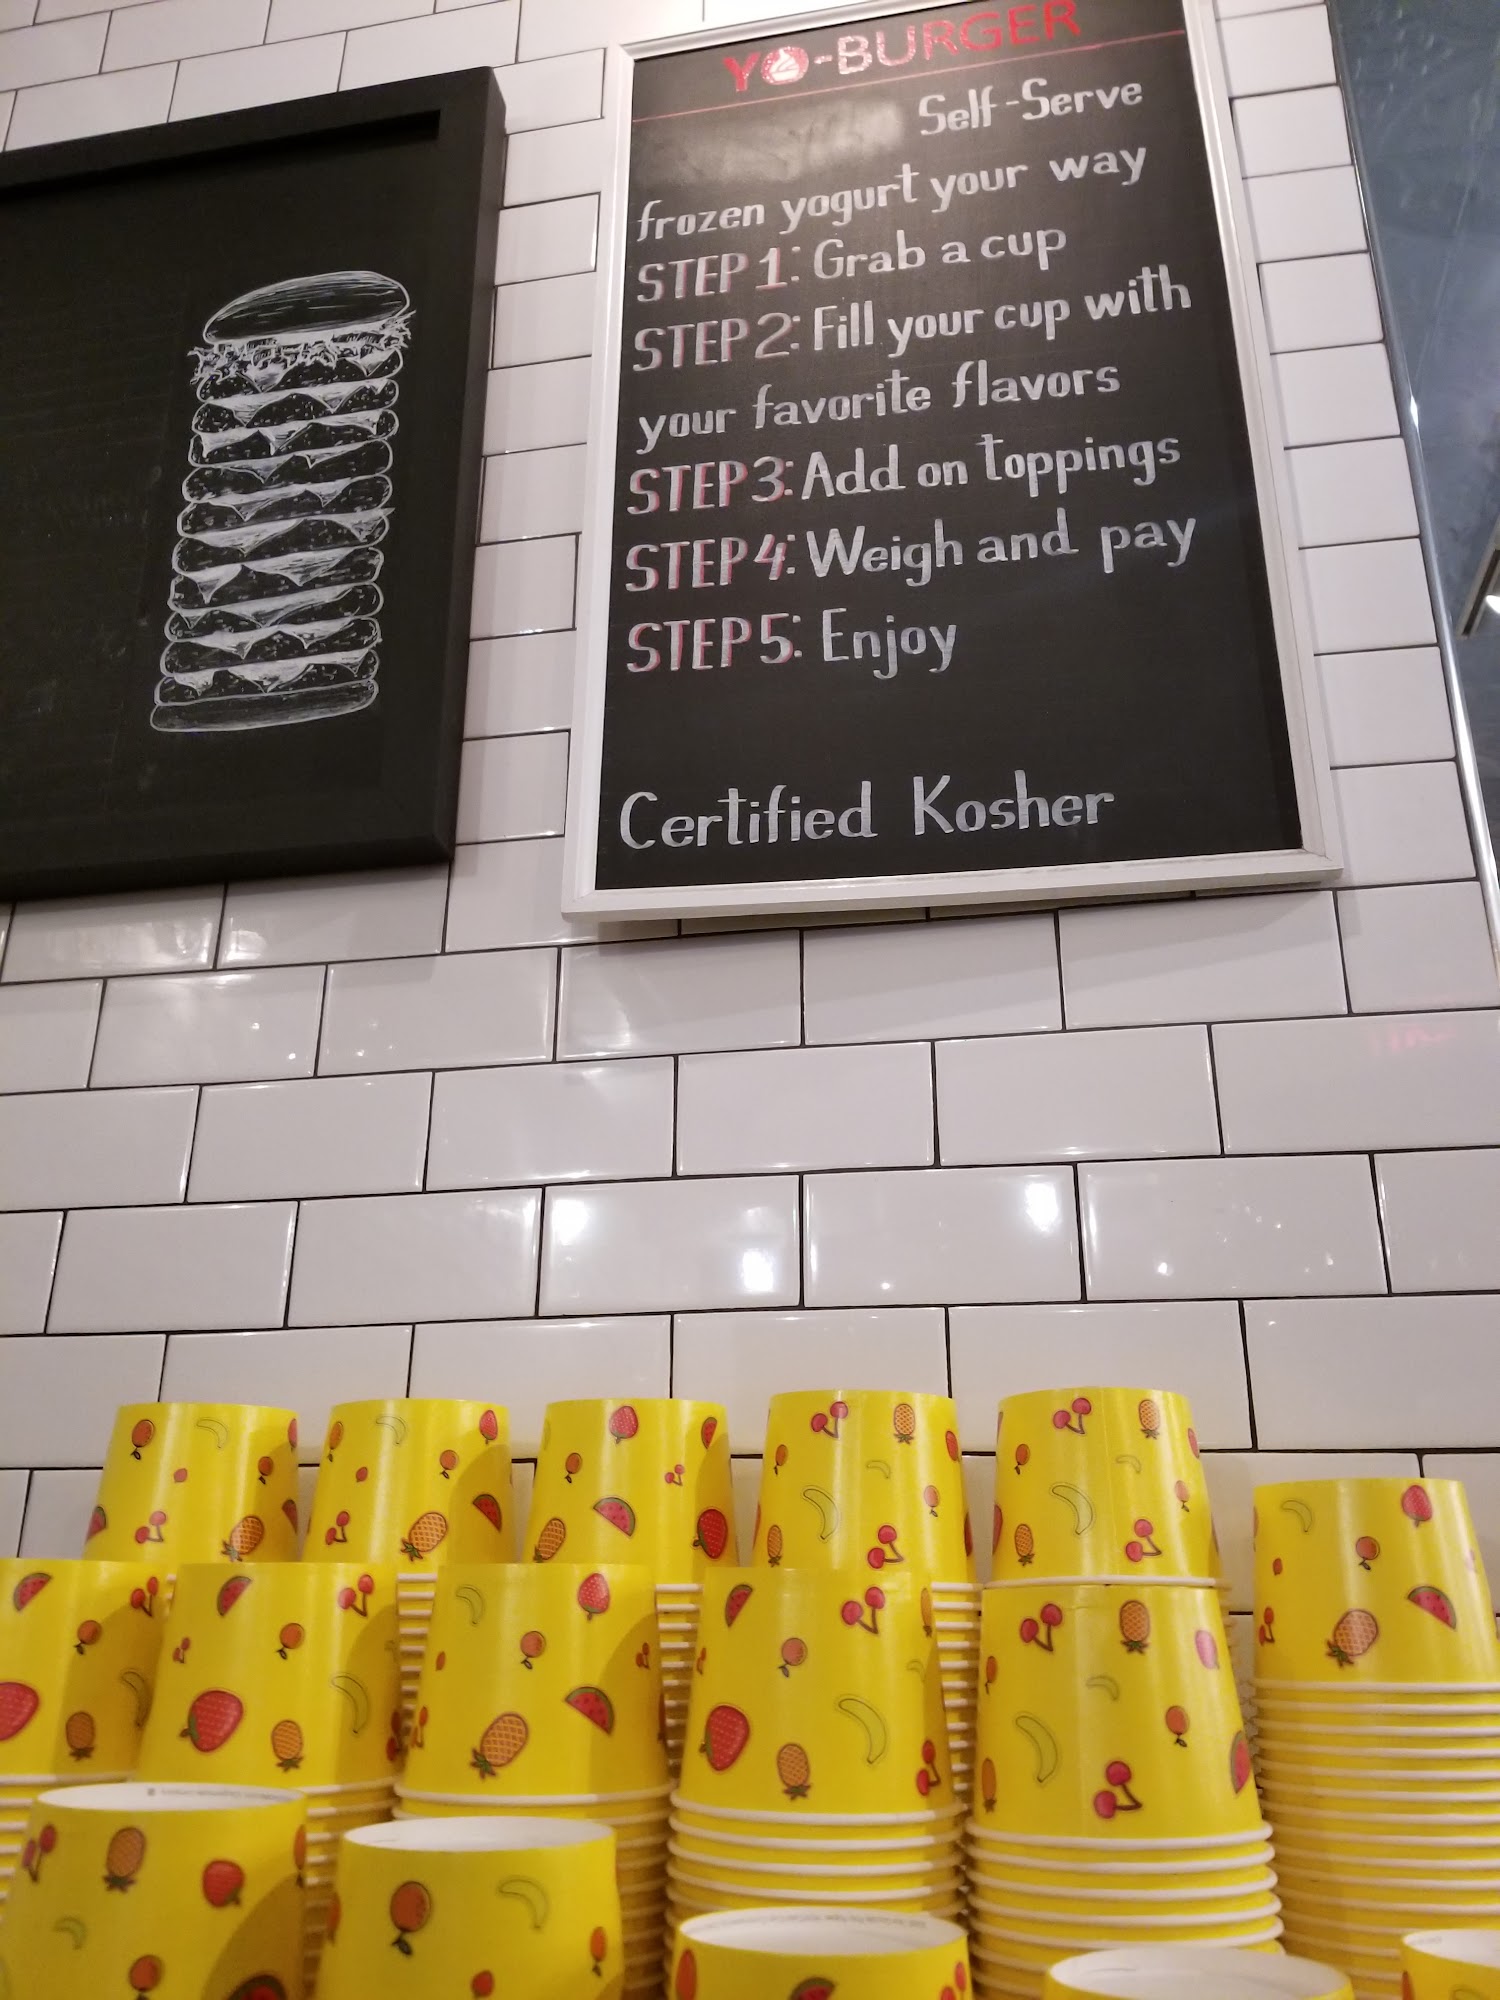 YO-BURGER
Self-Serve
frozen yogurt your way
STEP 1: Grab a cup
STEP 2: Fill your cup with
your favorite flavors
STEP 3: Add on toppings
STEP 4: Weigh and pay
STEP 5: Enjoy
Certified Kosher